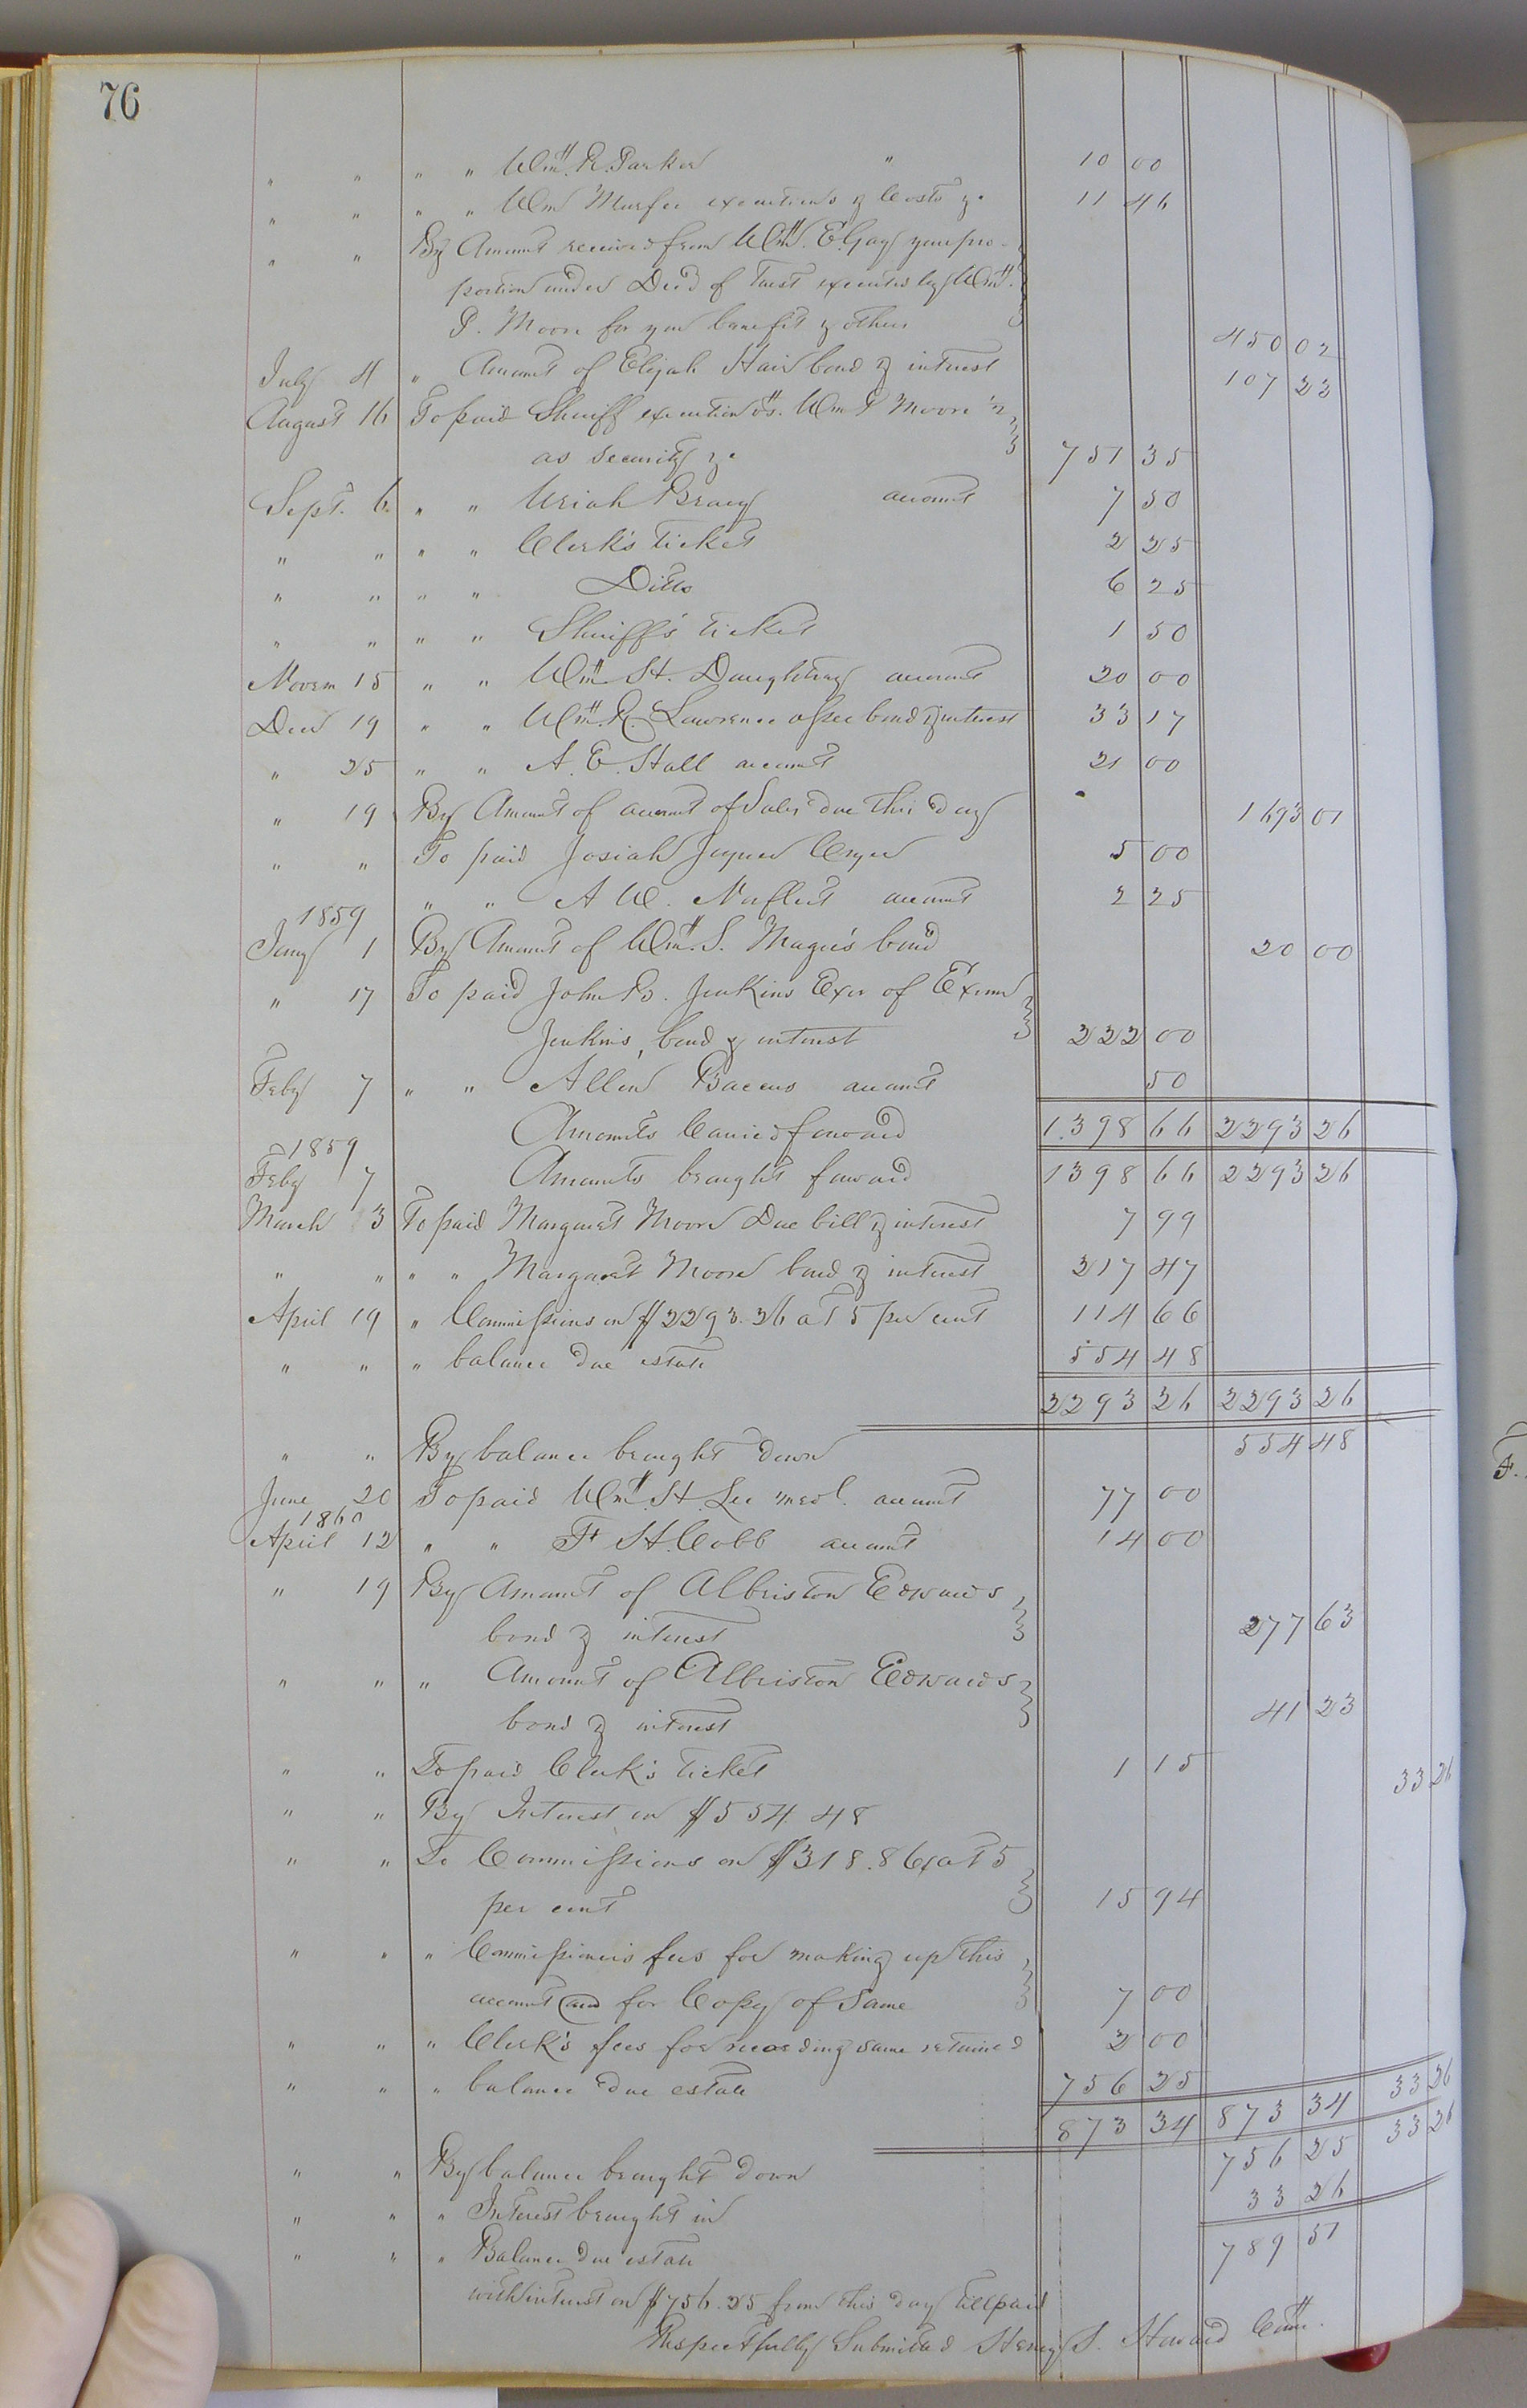 76
" " " " Wm. R. Parker " 10 00
" " " " Wm Murfee executions & Costs &c 11 46
" " By Amount received from Wm. E. Gay your pro-
portion under Deed of Trust executed by Wm.
P. Moore for your benefit & others 450 02
July 4 " Amount of Elijah Hair bond & interest 107 23
August 16 To paid Sheriff execution vs. Wm P Moore
as Security &c 751 35
Sept. 6 " " Uriah Bracy account 7 50
" " " " Clerk's ticket 2 25
" " " " Ditto 6 25
" " " " Sheriff's ticket 1 50
Novem 15 " " Wm H. Daughtrey account 20 00
Decr 19 " " Wm. R. Lawrence assee bond & interest 33 17
" 25 " " A. E. Hall account 21 00
" 19 By Amount of account of Sales due this day 1693 01
" " To paid Josiah Joyner Cryer 5 00
" " A W. Norfleet account 2 25
1859
Jany 1 By Amount of Wm. S. Magee's bond 20 00
" 17 To paid John B. Jenkins Exor of Exum
Jenkins, bond & interest 222 00
Feby 7 " " Allen account 50
Amounts Carried forward 1398 66 2293 26
1859
Feby 7 Amounts brought forward 1398 66 2293 26
March 3 To paid Margaret Moore Due bill & interest 7 99
" " " " Margaret Moore bond & interest 217 47
April 19 " Commissions on $2293.26 at 5 per cent 114 66
" " " balance due estate 554 48
2293 26 2293 26
" " By balance brought down 554 48
June 20 To paid Wm. H. Lee medl. account 77 00
1860
April 12 " " F H. Cobb account 14 00
" 19 By Amount of Albriston Edwards
bond & interest 277 63
" " " Amount of Albriston Edwards
bond & interest 41 23
" " To paid Clerk's ticket 1 15
" " By Interest on $554.48 33 26
" " To Commissions on $318.86 at 5
per cent 15 94
" " " Commissioner's fees for making up this
account and for Copy of Same 7 00
" " " Clerk's fees for recording same retained 2 00
" " " balance due estate 756 25
873 34 873 34 33 26
" " By balance brought down 756 25 33 26
" " " Interest brought in 33 26
" " " Balance due estate 789 51
with interest on $756.25 from this day till paid
Respectfully Submitted Henry S. Howard Comr.
F.